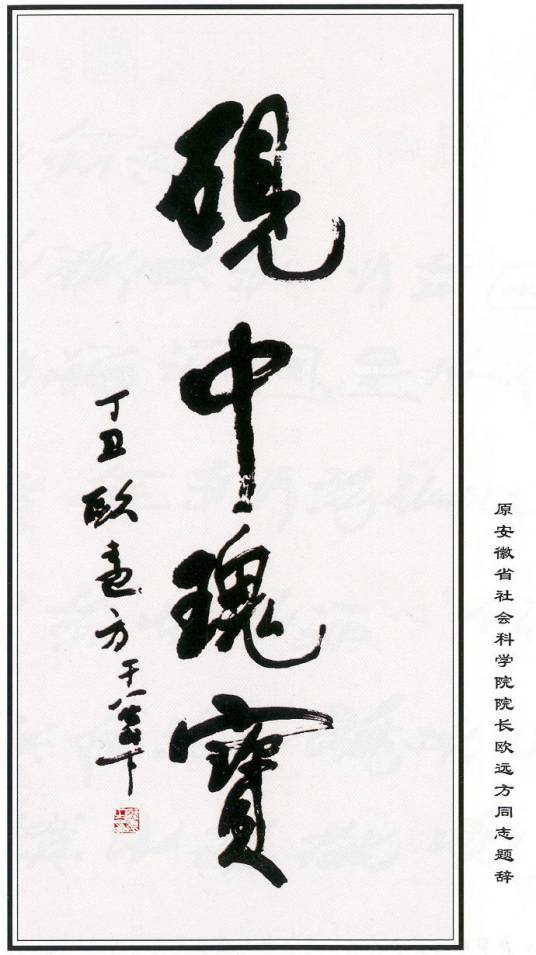 硯中瑰寶
丁丑歐遠方于
原安徽省社会科学院院长欧远方同志题辞